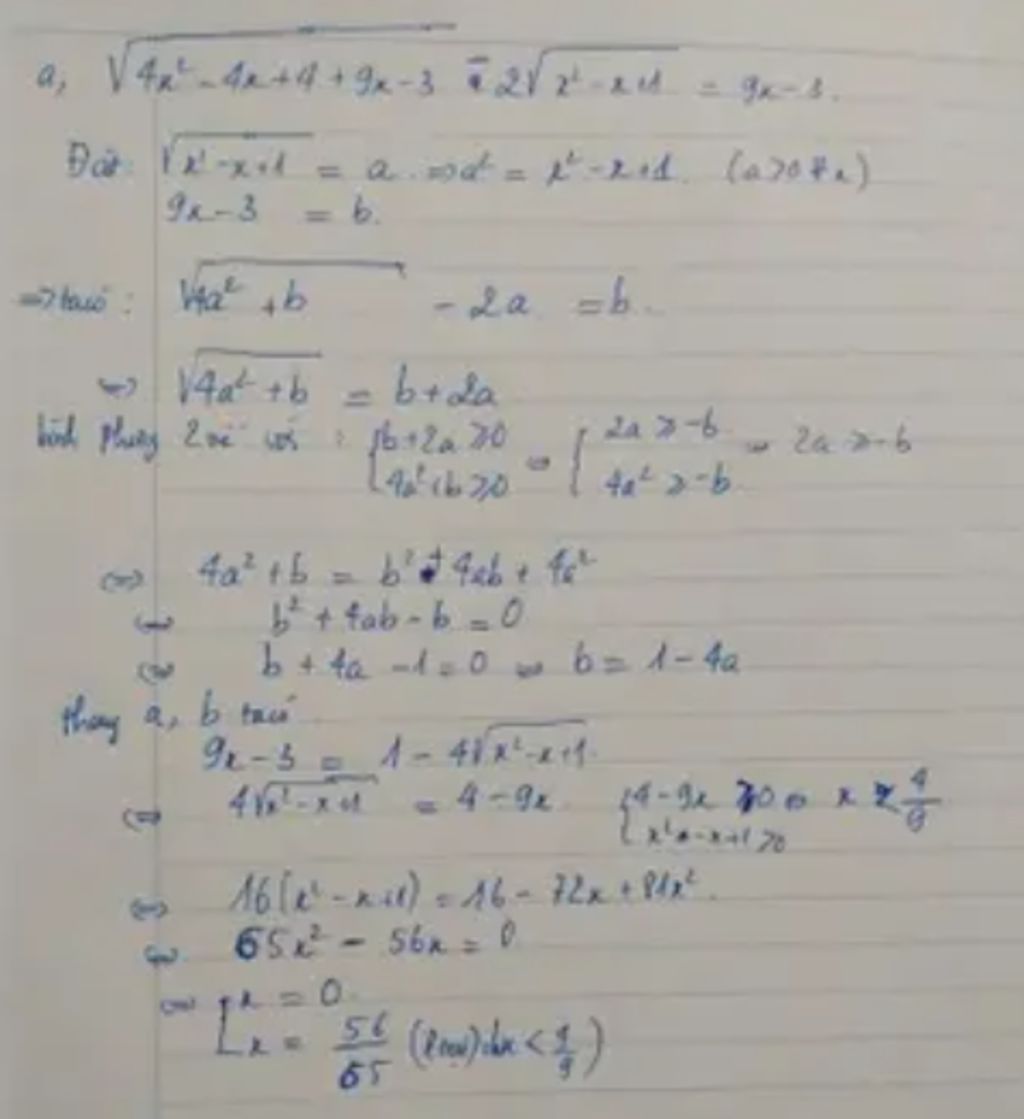 a, √(4x² - 4x + 4 + 9x - 3) - 2√(x² - x + 1) = 9x - 3.
Đặt √(x² - x + 1) = a ⇒ a² = x² - x + 1. (a > 0 ∀x)
9x - 3 = b.
⇒ ta có: √(4a² + b) - 2a = b.
⇔ √(4a² + b) = b + 2a
bình phương 2 vế với : { b + 2a ≥ 0 ⇔ { 2a ≥ -b ⇔ 2a ≥ -b
4a² + b ≥ 0 4a² ≥ -b
⇔ 4a² + b = b² + 4ab + 4a²
⇔ b² + 4ab - b = 0
⇔ b + 4a - 1 = 0 ⇔ b = 1 - 4a
thay a, b ta có
9x - 3 = 1 - 4√(x² - x + 1).
⇔ 4√(x² - x + 1) = 4 - 9x { 4 - 9x ≥ 0 ⇔ x ≤ 4/9
x² - x + 1 ≥ 0
⇔ 16(x² - x + 1) = 16 - 72x + 81x².
⇔ 65x² - 56x = 0
⇔ [ x = 0.
x = 56/65 (loại) do x < 4/9)